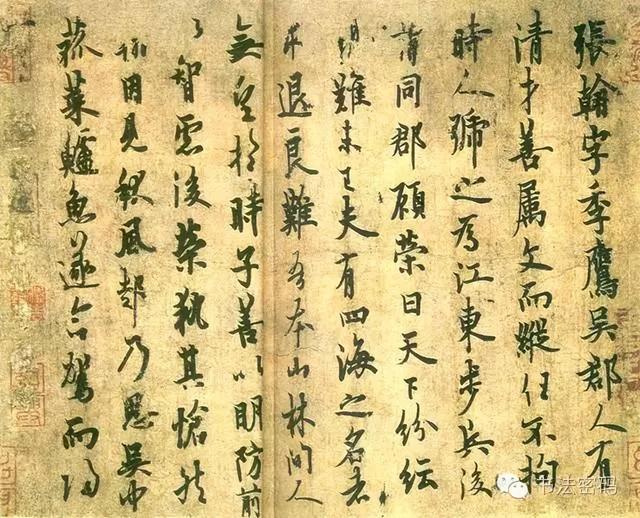 張翰字季鷹吳郡人有
清才善屬文而縱任不拘
時人號之為江東步兵後
謂同郡顧榮曰天下紛紜
禍難未已夫有四海之名者
求退良難吾本山林間人
無望於時子善以明防前
以智慮後榮執其愴然
翰因見秋風起乃思吳中
菰菜鱸魚遂命駕而歸
书法密码